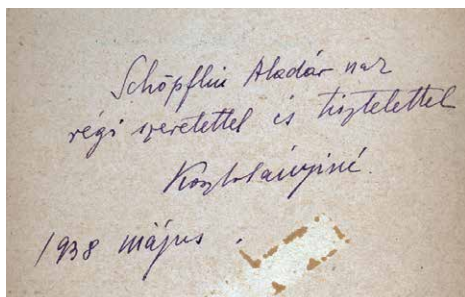 Schöpflin Aladárnak
régi szeretettel és tisztelettel
Kosztolányiné.
1938 május.